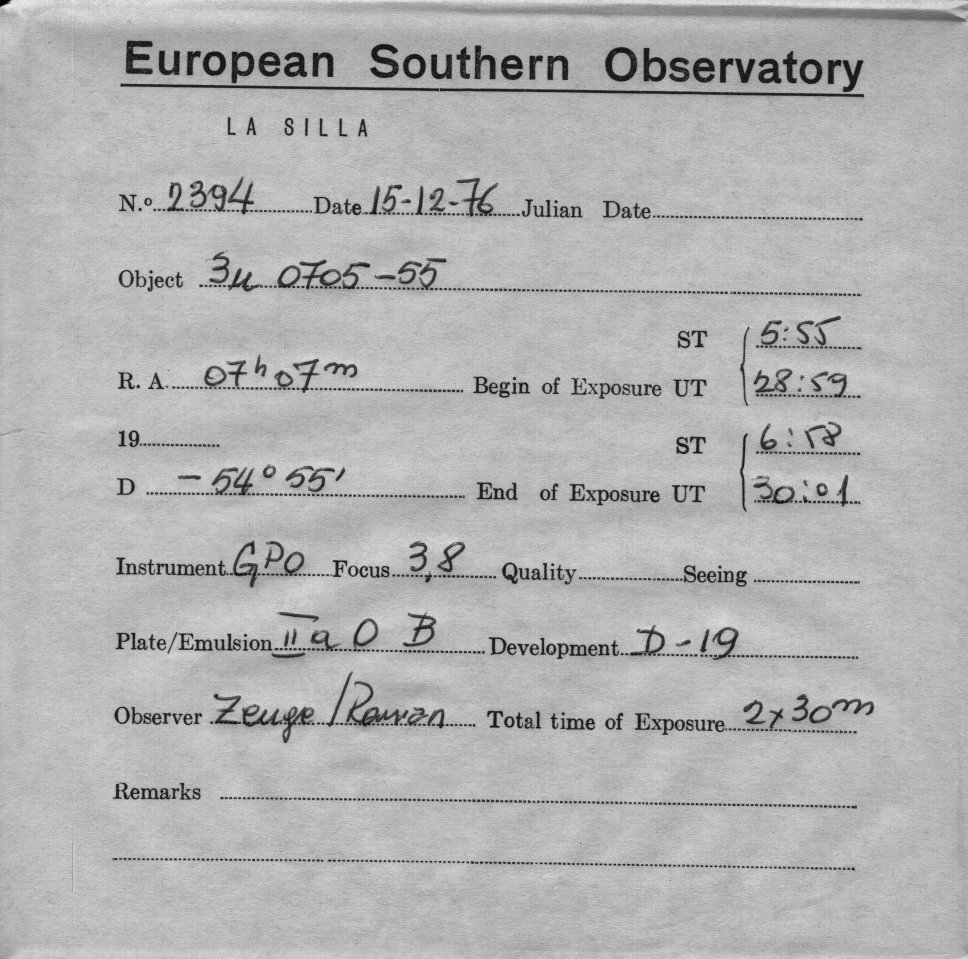 European Southern Observatory
LA SILLA
N.º 2394 Date 15-12-76 Julian Date
Object 3u 0705-55
ST 5:55
R. A. 07h 07m Begin of Exposure UT 28:59
19 ST 6:58
D -54° 55' End of Exposure UT 30:01
Instrument GPO Focus 3,8 Quality Seeing
Plate/Emulsion II a O B Development D-19
Observer Zeuge / Total time of Exposure 2x30m
Remarks